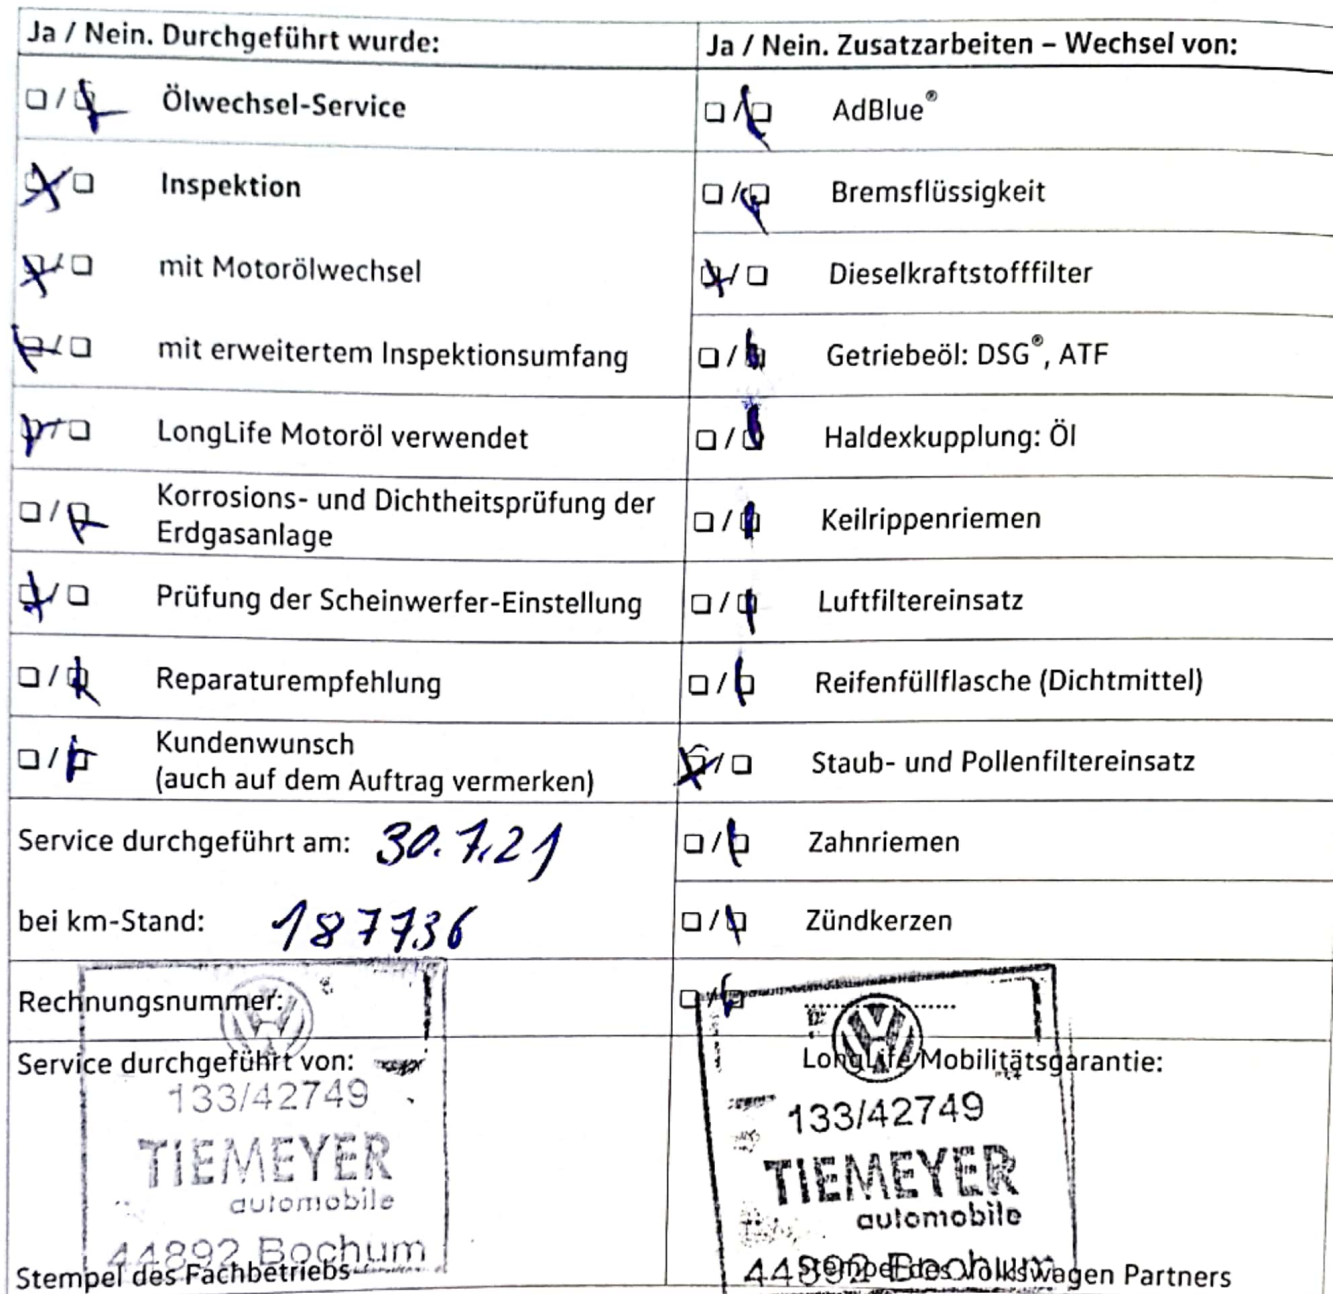 Ja / Nein. Durchgeführt wurde:
Ölwechsel-Service
Inspektion
mit Motorölwechsel
mit erweitertem Inspektionsumfang
LongLife Motoröl verwendet
Korrosions- und Dichtheitsprüfung der
Erdgasanlage
Prüfung der Scheinwerfer-Einstellung
Reparaturempfehlung
Kundenwunsch
(auch auf dem Auftrag vermerken)
Service durchgeführt am: 30.7.21
bei km-Stand: 187736
Rechnungsnummer:
Service durchgeführt von:
133/42749
TIEMEYER
automobile
44892 Bochum
Stempel des Fachbetriebs
Ja / Nein. Zusatzarbeiten – Wechsel von:
AdBlue®
Bremsflüssigkeit
Dieselkraftstofffilter
Getriebeöl: DSG®, ATF
Haldexkupplung: Öl
Keilrippenriemen
Luftfiltereinsatz
Reifenfüllflasche (Dichtmittel)
Staub- und Pollenfiltereinsatz
Zahnriemen
Zündkerzen
LongLife Mobilitätsgarantie:
133/42749
TIEMEYER
automobile
44892 Bochum
Stempel des Volkswagen Partners